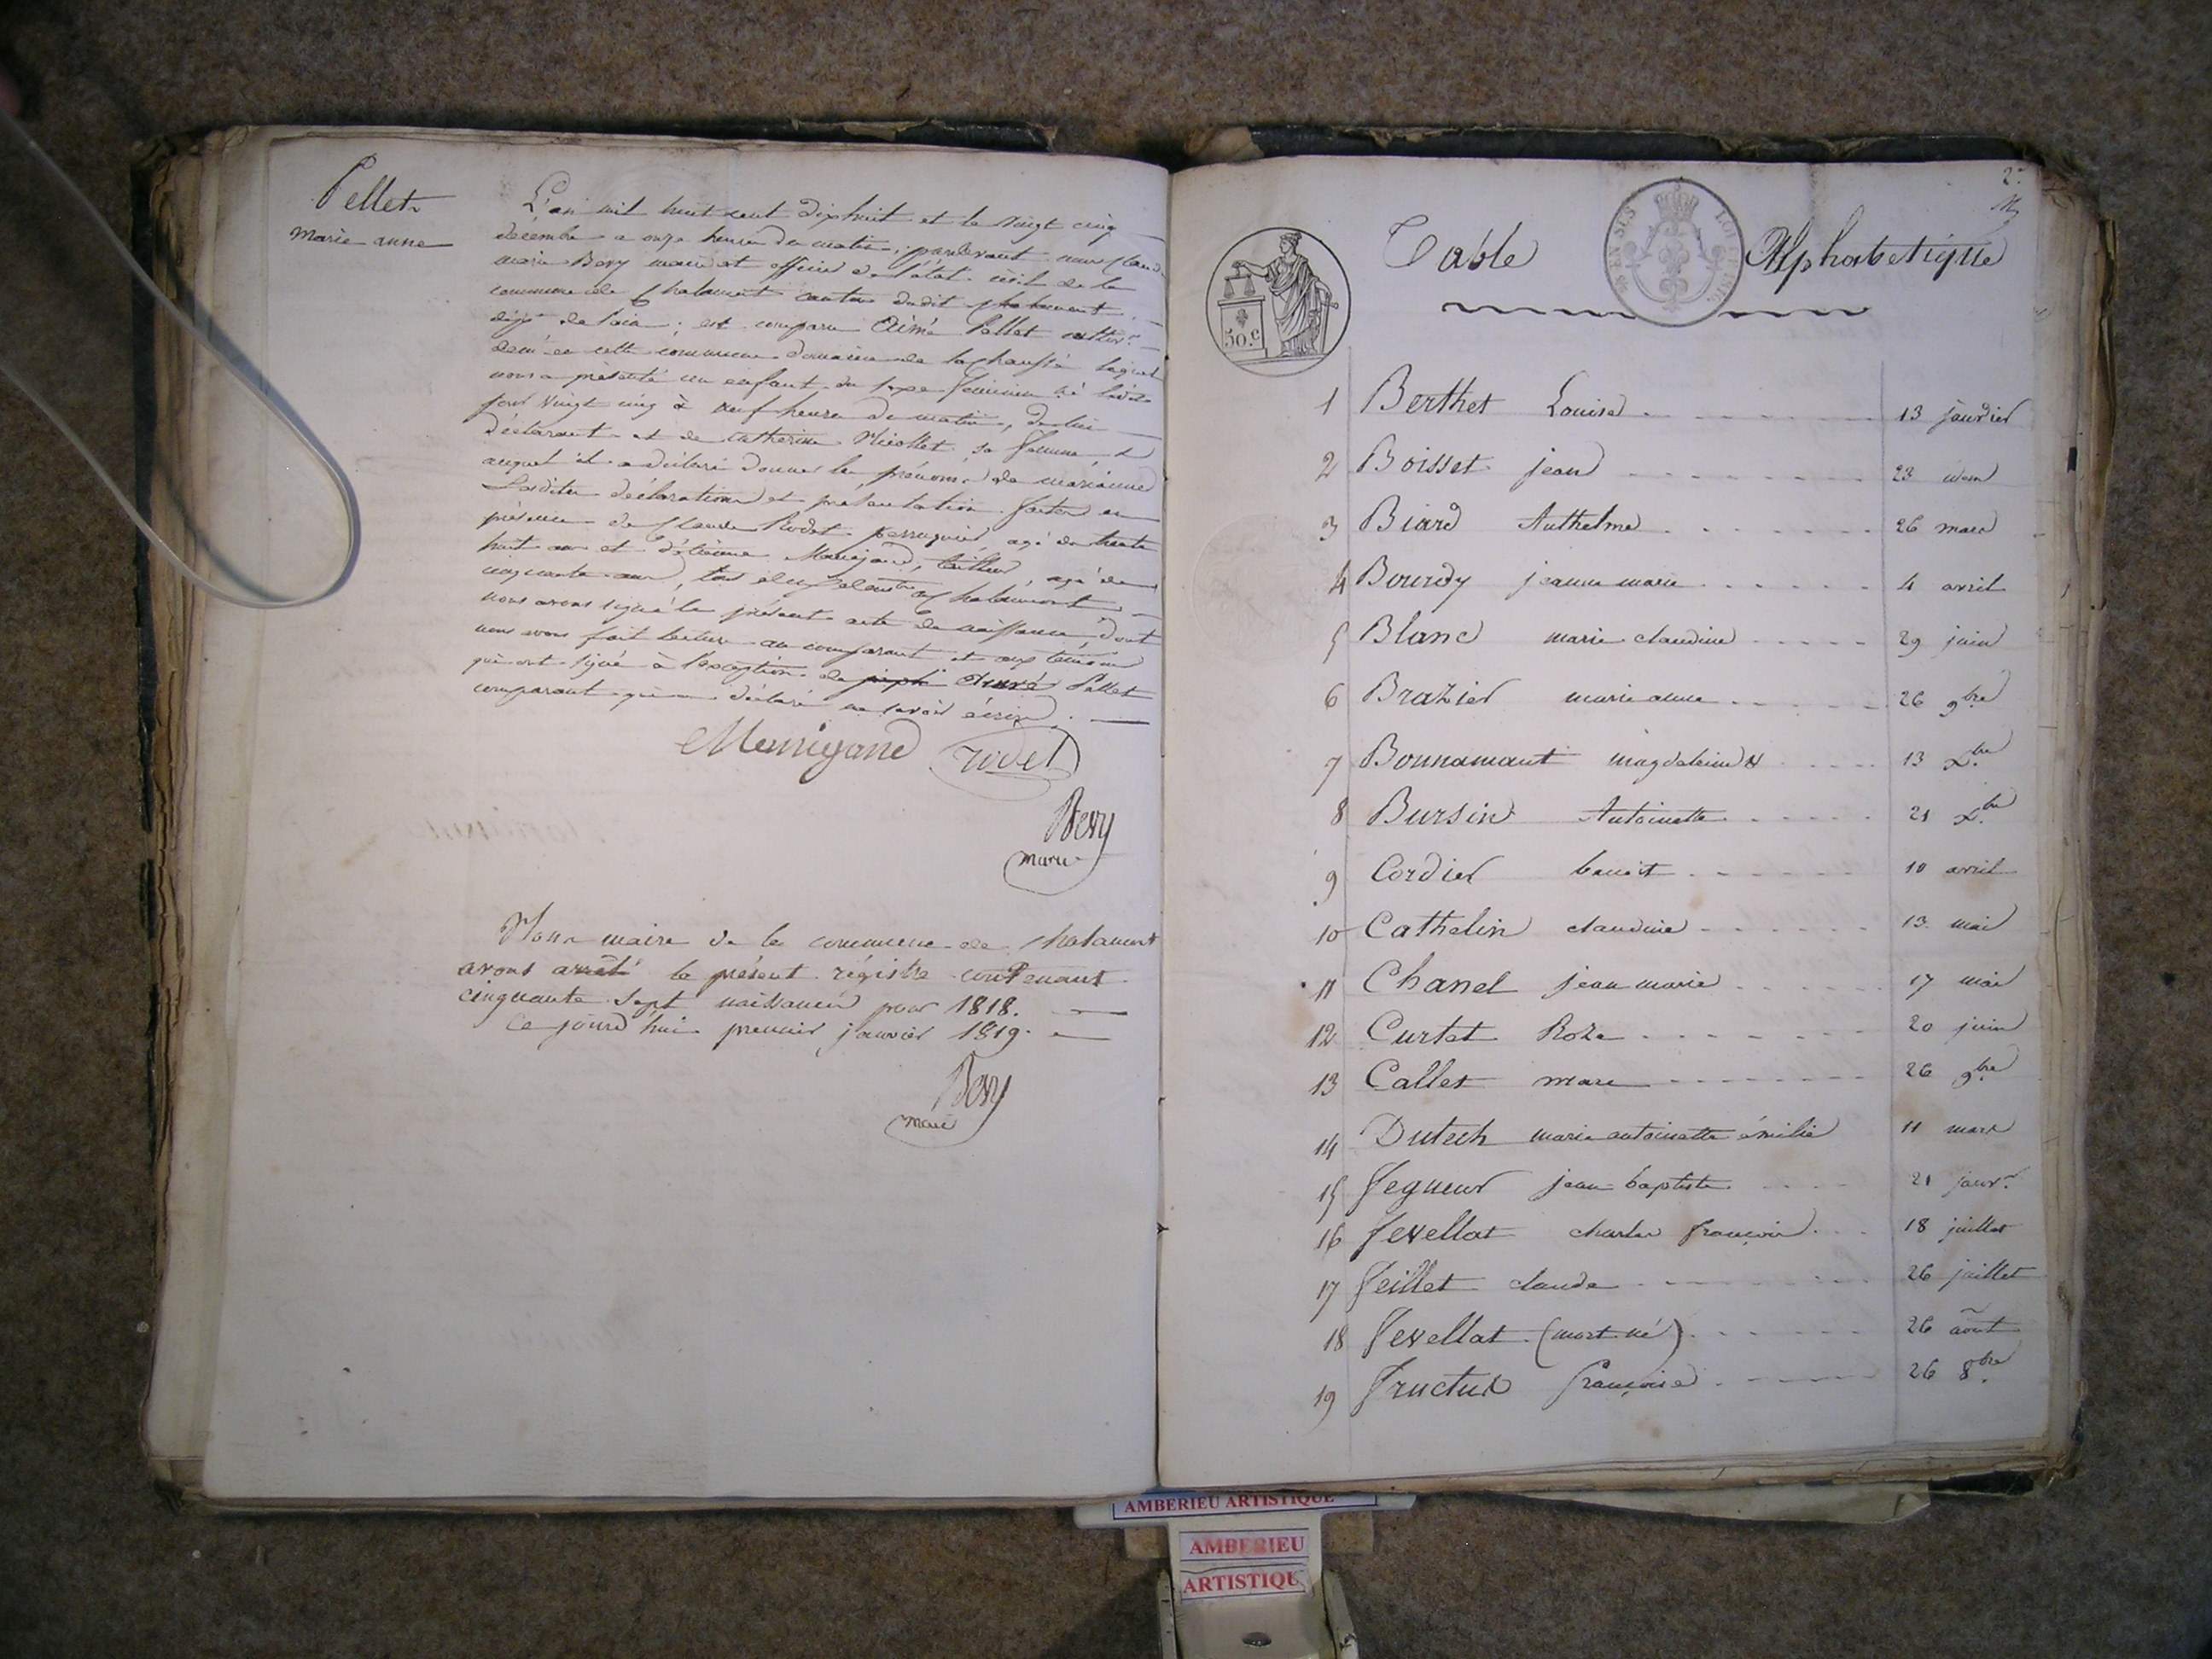 Pellet
marie anne
L'an mil huit cent dix huit et le vingt cinq
décembre a onze heures du matin, pardevant nous Claude
marie Bevy maire et officier de l'état civil de la
commune de Chalamont canton dudit Chalamont
dépt de l'ain; est comparu Aimé Pellet cultivr
demt en cette commune domaine de la Chaussée lequel
nous a présenté un enfant du sexe féminin né
jour vingt cinq à neuf heures du matin, de lui
déclarant et de catherine Nicollet sa femme, et
auquel il a déclaré donner les prénoms de marianne
Lesdites déclaration et présentation faites en
présence de Claude Rodet perruquier, agé de trente
huit ans et d'étienne Manigand, tailleur, agé de
cinquante ans, tous deux à Chalamont
nous avons signé le présent acte de naissance, dont
nous avons fait lecture au comparant et aux témoins
qui ont signé à l'exception de joseph Aimé Pellet
comparant qui a déclaré ne savoir écrire.
Manigand rodet
Bevy
maire
Nous maire de la commune de Chalamont
avons arrêté le présent régistre contenant
cinquante sept naissances pour 1818.
Ce jourd'hui premier janvier 1819.
Bevy
maire
2e
Table Alphabetique
50.c
1 Berthet Louise 13 janvier
2 Boisset jean 23 idem
3 Biard Anthelme 26 mars
4 Bourdy jeanne marie 4 avril
5 Blanc marie claudine 29 juin
6 Brazier marie anne 26 9bre
7 Bonnamant magdeleine 13 Xbre
8 Bursin Antoinette 21 Xbre
9 Cordier benoit 10 avril
10 Cathelin claudine 13 mai
11 Chanel jean marie 17 mai
12 Curtet Roze 20 juin
13 Callet marc 26 9bre
14 Dutech marie antoinette émilie 11 mars
15 Fegueur jean baptiste 21 janvr
16 Fevellat charles françois 18 juillet
17 Feillet claude 26 juillet
18 Fevellat (mort né) 26 août
19 Fructus françoise 26 8bre
AMBERIEU ARTISTIQUE
AMBERIEU
ARTISTIQU